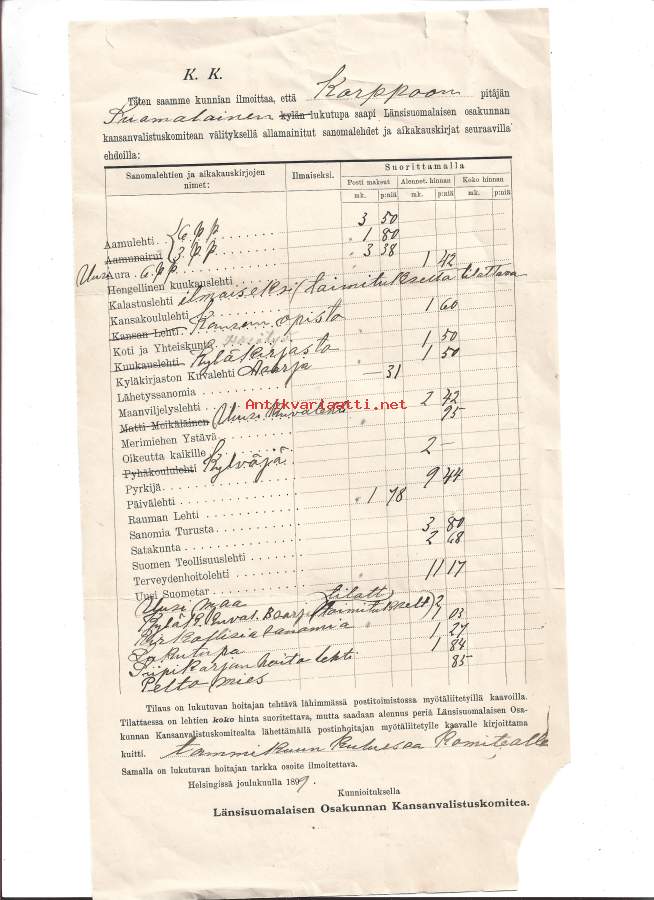 K. K.
Täten saamme kunnian ilmoittaa, että Korppoon pitäjän
kylän lukutupa saapi Länsisuomalaisen osakunnan
kansanvalistuskomitean välityksellä allamainitut sanomalehdet ja aikakauskirjat seuraavilla
ehdoilla:
Sanomalehtien ja aikakauskirjojen nimet: Ilmaiseksi. Suorittamalla
Posti maksut Alennet. hinnan Koko hinnan
mk. p:niä mk. p:niä mk. p:niä
Aamulehti 6 p.p. 3 50
Aamunairui 3 p.p. 1 80
Uusi Aura 6 p.p. 3 38
Hengellinen kuukauslehti 1 42
Kalastuslehti ilmaiseksi (toimitukselta tilattava
Kansakoululehti
Kansan Lehti Kansan opisto 1 60
Koti ja Yhteiskunta
Kuukauslehti Kyläkirjasto 1 50
Kyläkirjaston Kuvalehti A sarja 1 50
Lähetyssanomia — 31
Maanviljelyslehti 2 42
Matti Meikäläinen Uusi Kuvalehti 95
Merimiehen Ystävä
Oikeutta kaikille 2 —
Pyhäkoululehti Kylväjä
Pyrkijä 9 44
Päivälehti 1 78
Rauman Lehti
Sanomia Turusta 3 80
Satakunta 2 68
Suomen Teollisuuslehti
Terveydenhoitolehti 11 17
Uusi Suometar
Uusi maa
Kyläk. kuval. B sarja (tilatt. toimitukselt.)
Kirkollisia sanomia 1 03
Lukutupa 1 27
Siipikarjanhoito lehti 1 84
Pelto mies 85
Tilaus on lukutuvan hoitajan tehtävä lähimmässä postitoimistossa myötäliitetyillä kaavoilla.
Tilattaessa on lehtien koko hinta suoritettava, mutta saadaan alennus periä Länsisuomalaisen Osa-
kunnan Kansanvalistuskomitealta lähettämällä postinhoitajan myötäliitetylle kaavalle kirjoittama
kuitti. tammikuun kuluessa komitealle
Samalla on lukutuvan hoitajan tarkka osoite ilmoitettava.
Helsingissä joulukuulla 1899.
Kunnioituksella
Länsisuomalaisen Osakunnan Kansanvalistuskomitea.
Antikvariaatti.net